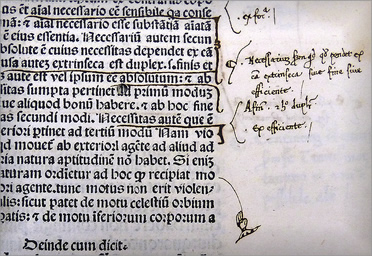 us ẽt aĩal necessario eẽ sensibile qa conse
nã: ⁊ aĩal necessario esse substãtiã aĩatã
ẽ eius essentia. Necessariũ autem secun
bsolute ẽ cuius necessitas dependet ex cã
usa autez extrinseca est duplex. s. finis et
s aute est vel ipsum eẽ absolutum: ⁊ ab
sitas sumpta pertinet primũ moduz
ue aliquod bonũ habere. ⁊ ab hoc fine
as secundi modi. Necessitas autẽ que ẽ
eriori ptinet ad tertiũ modũ Nam vio
qd mouet ab exteriori agẽte ad aliud ad
ria natura aptitudinẽ nõ habet. Si eniz
aturam ordietur ad hoc recipiat mo
ori agente. tunc motus non erit violen
alis: sicut patet de motu celestiũ orbium
ratis: ⁊ de motu iferiorum corporum a
Deinde cum dicit.
ex
Necessarium
cã extrinseca siue fine siue
efficiente.
Ex efficiente.